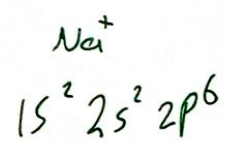 Na⁺
1s² 2s² 2p⁶